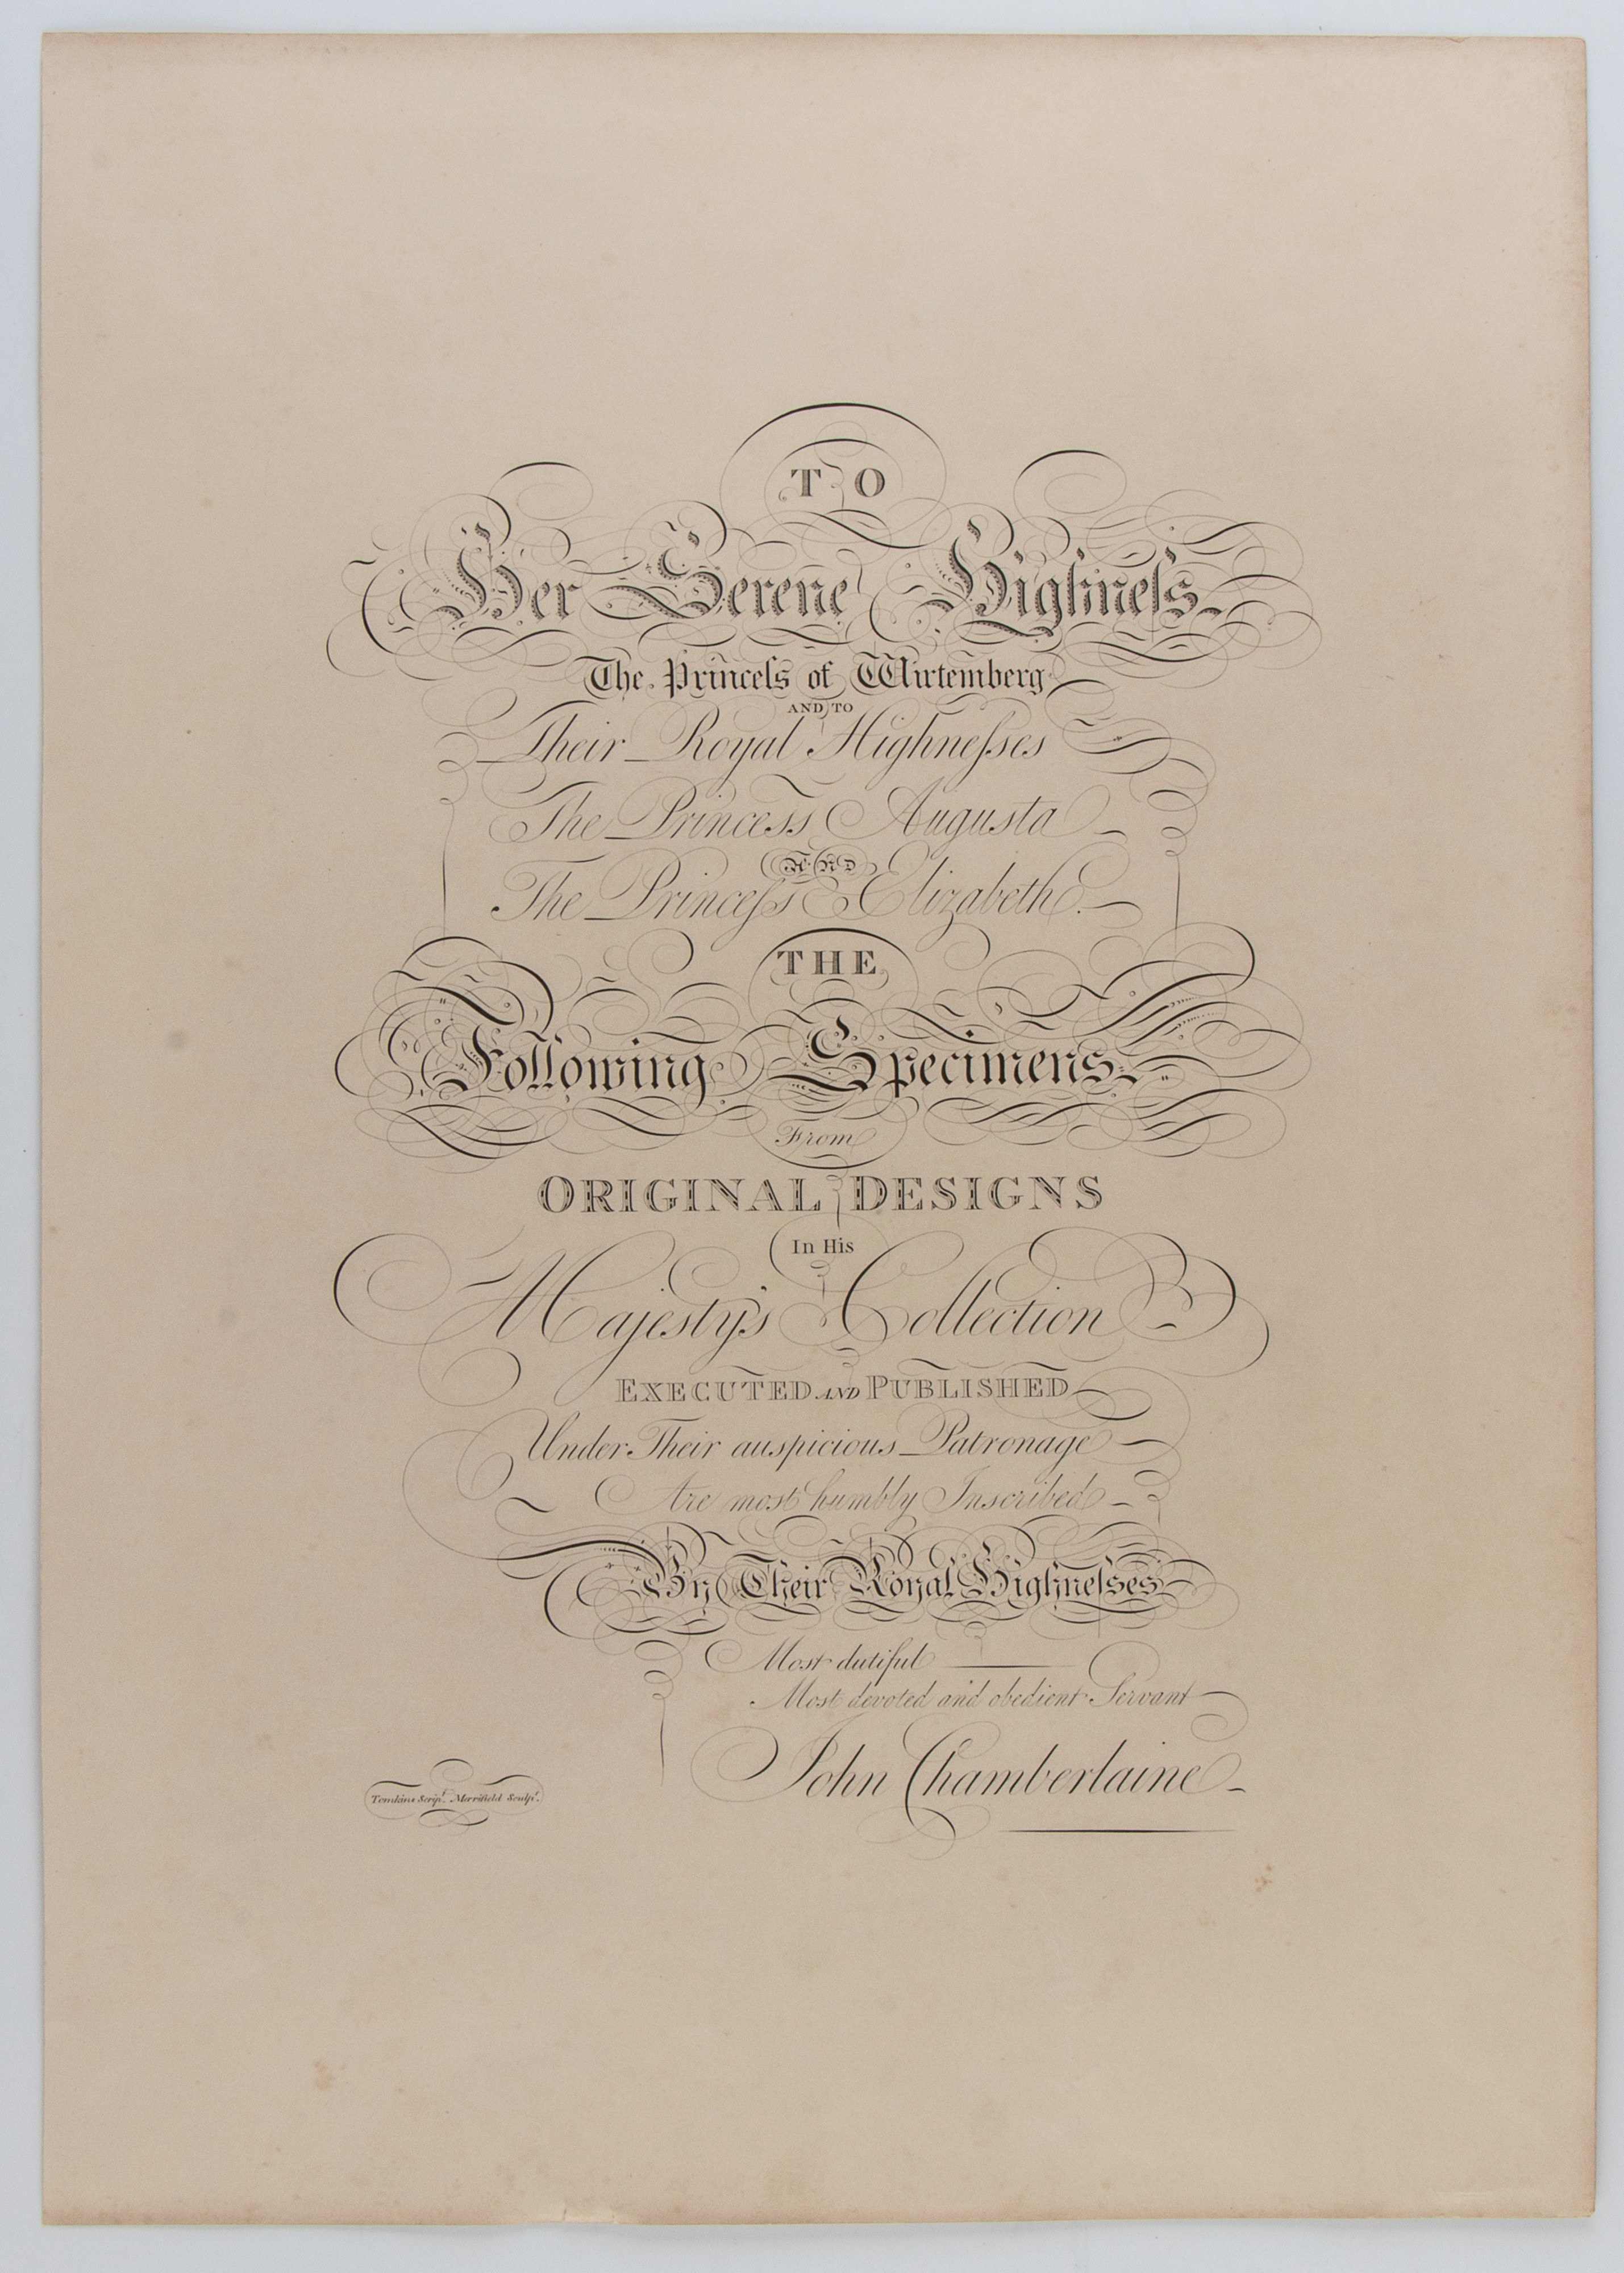 TO
Her Serene Highneſs
The Princeſs of Wirtemberg
AND TO
Their Royal Highneſses
The Princess Augusta
AND
The Princeſs Elizabeth.
THE
Following Specimens
From
ORIGINAL DESIGNS
In His
Majesty's Collection
EXECUTED AND PUBLISHED
Under Their auspicious Patronage
Are most humbly Inscribed
By Their Royal Highneſses
Most dutiful
Most devoted and obedient Servant
John Chamberlaine
Tomkins Scripᵗ. Merrifield Sculpᵗ.